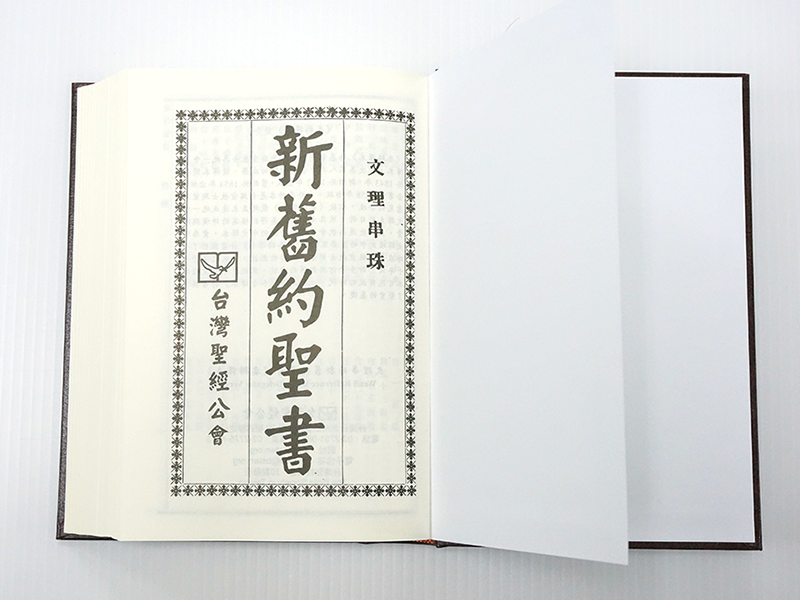 文理串珠
新舊約聖書
台灣聖經公會